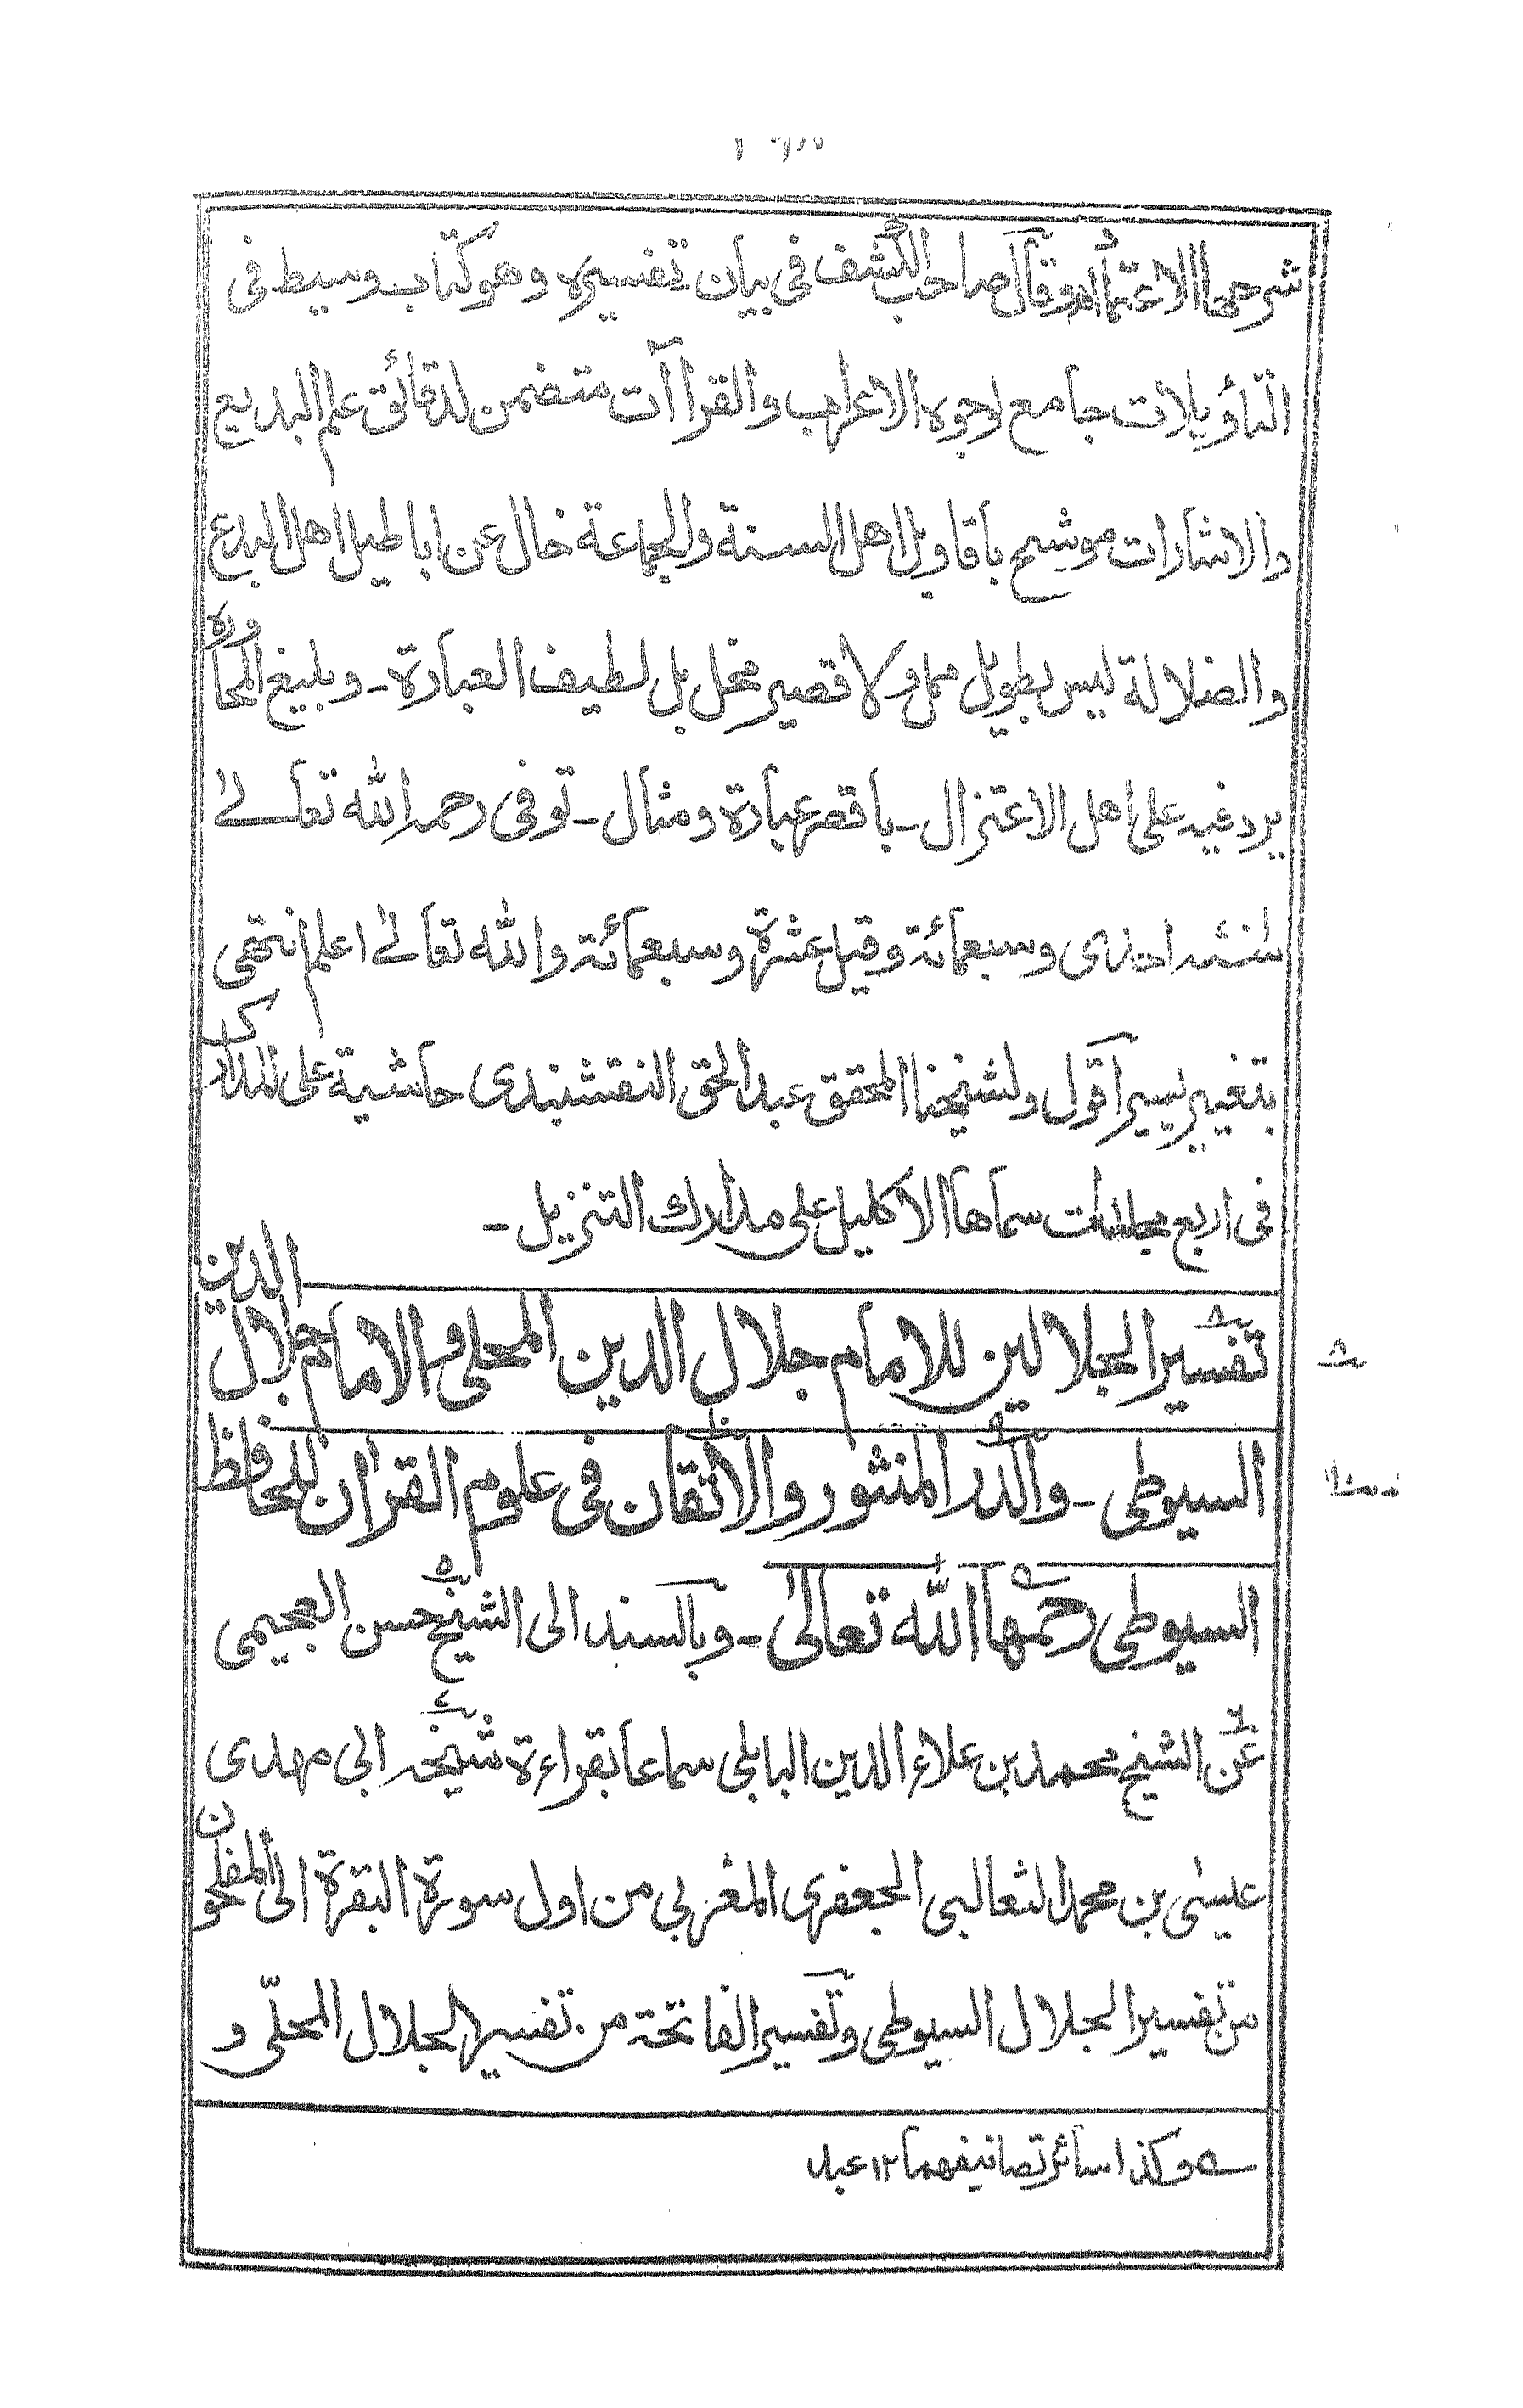 شرحها الاعتماد وقال صاحب الكشف في بيان تفسيره وهو كتاب وسيط في
التأويلات جامع لوجوه الاعراب والقراآت متضمن لدقائق علم البديع
والاشارات موشح بأقاويل اهل السنة والجماعة خال عن اباطيل اهل البدع
والضلالة ليس بطويل ممل ولا قصير مخل بل لطيف العبارة ـ وبليغ المحاوره
يرد فيه على اهل الاعتزال ـ باقصر عبارة ومثال ـ توفى رحمه الله تعالى
سنة احدى وسبعمائة وقيل عشرة وسبعمائة والله تعالى اعلم انتهى
بتغيير يسير اقول ولشيخنا المحقق عبد الحق النقشبندى حاشية على المدارك
فى اربع مجلدات سماها الاكليل على مدارك التنزيل ـ
تفسير الجلالين للامام جلال الدين المحلى والامام جلال الدين
السيوطى ـ والدر المنثور والاتقان فى علوم القران للحافظ
السيوطى رحمهما الله تعالى ـ وبالسند الى الشيخ حسن العجيمى
عن الشيخ محمد بن علاء الدين البابلى سماعا بقراءة شيخه ابى مهدى
عيسى بن محمد الثعالبى الجعفرى المغربى من اول سورة البقرة الى المفلحون
من تفسير الجلال السيوطى وتفسير الفاتحة من تفسير الجلال المحلّى و
ه وكذا سائر تصانيفهما ١٢ عبد